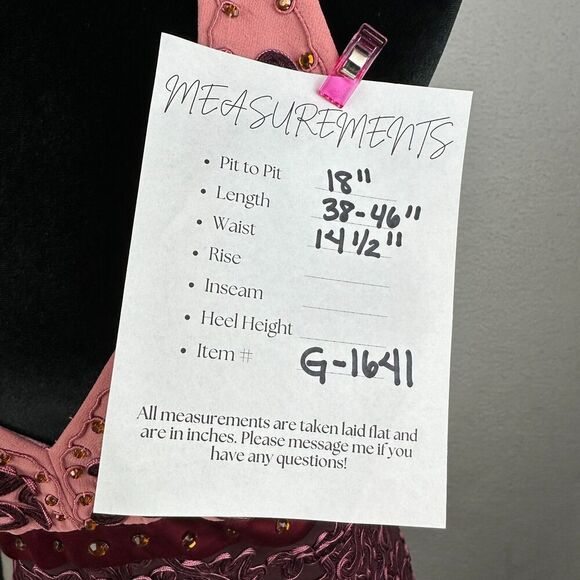 MEASUREMENTS
• Pit to Pit 18"
• Length 38-46"
• Waist 14 1/2"
• Rise
• Inseam
• Heel Height
• Item # G-1641
All measurements are taken laid flat and
are in inches. Please message me if you
have any questions!